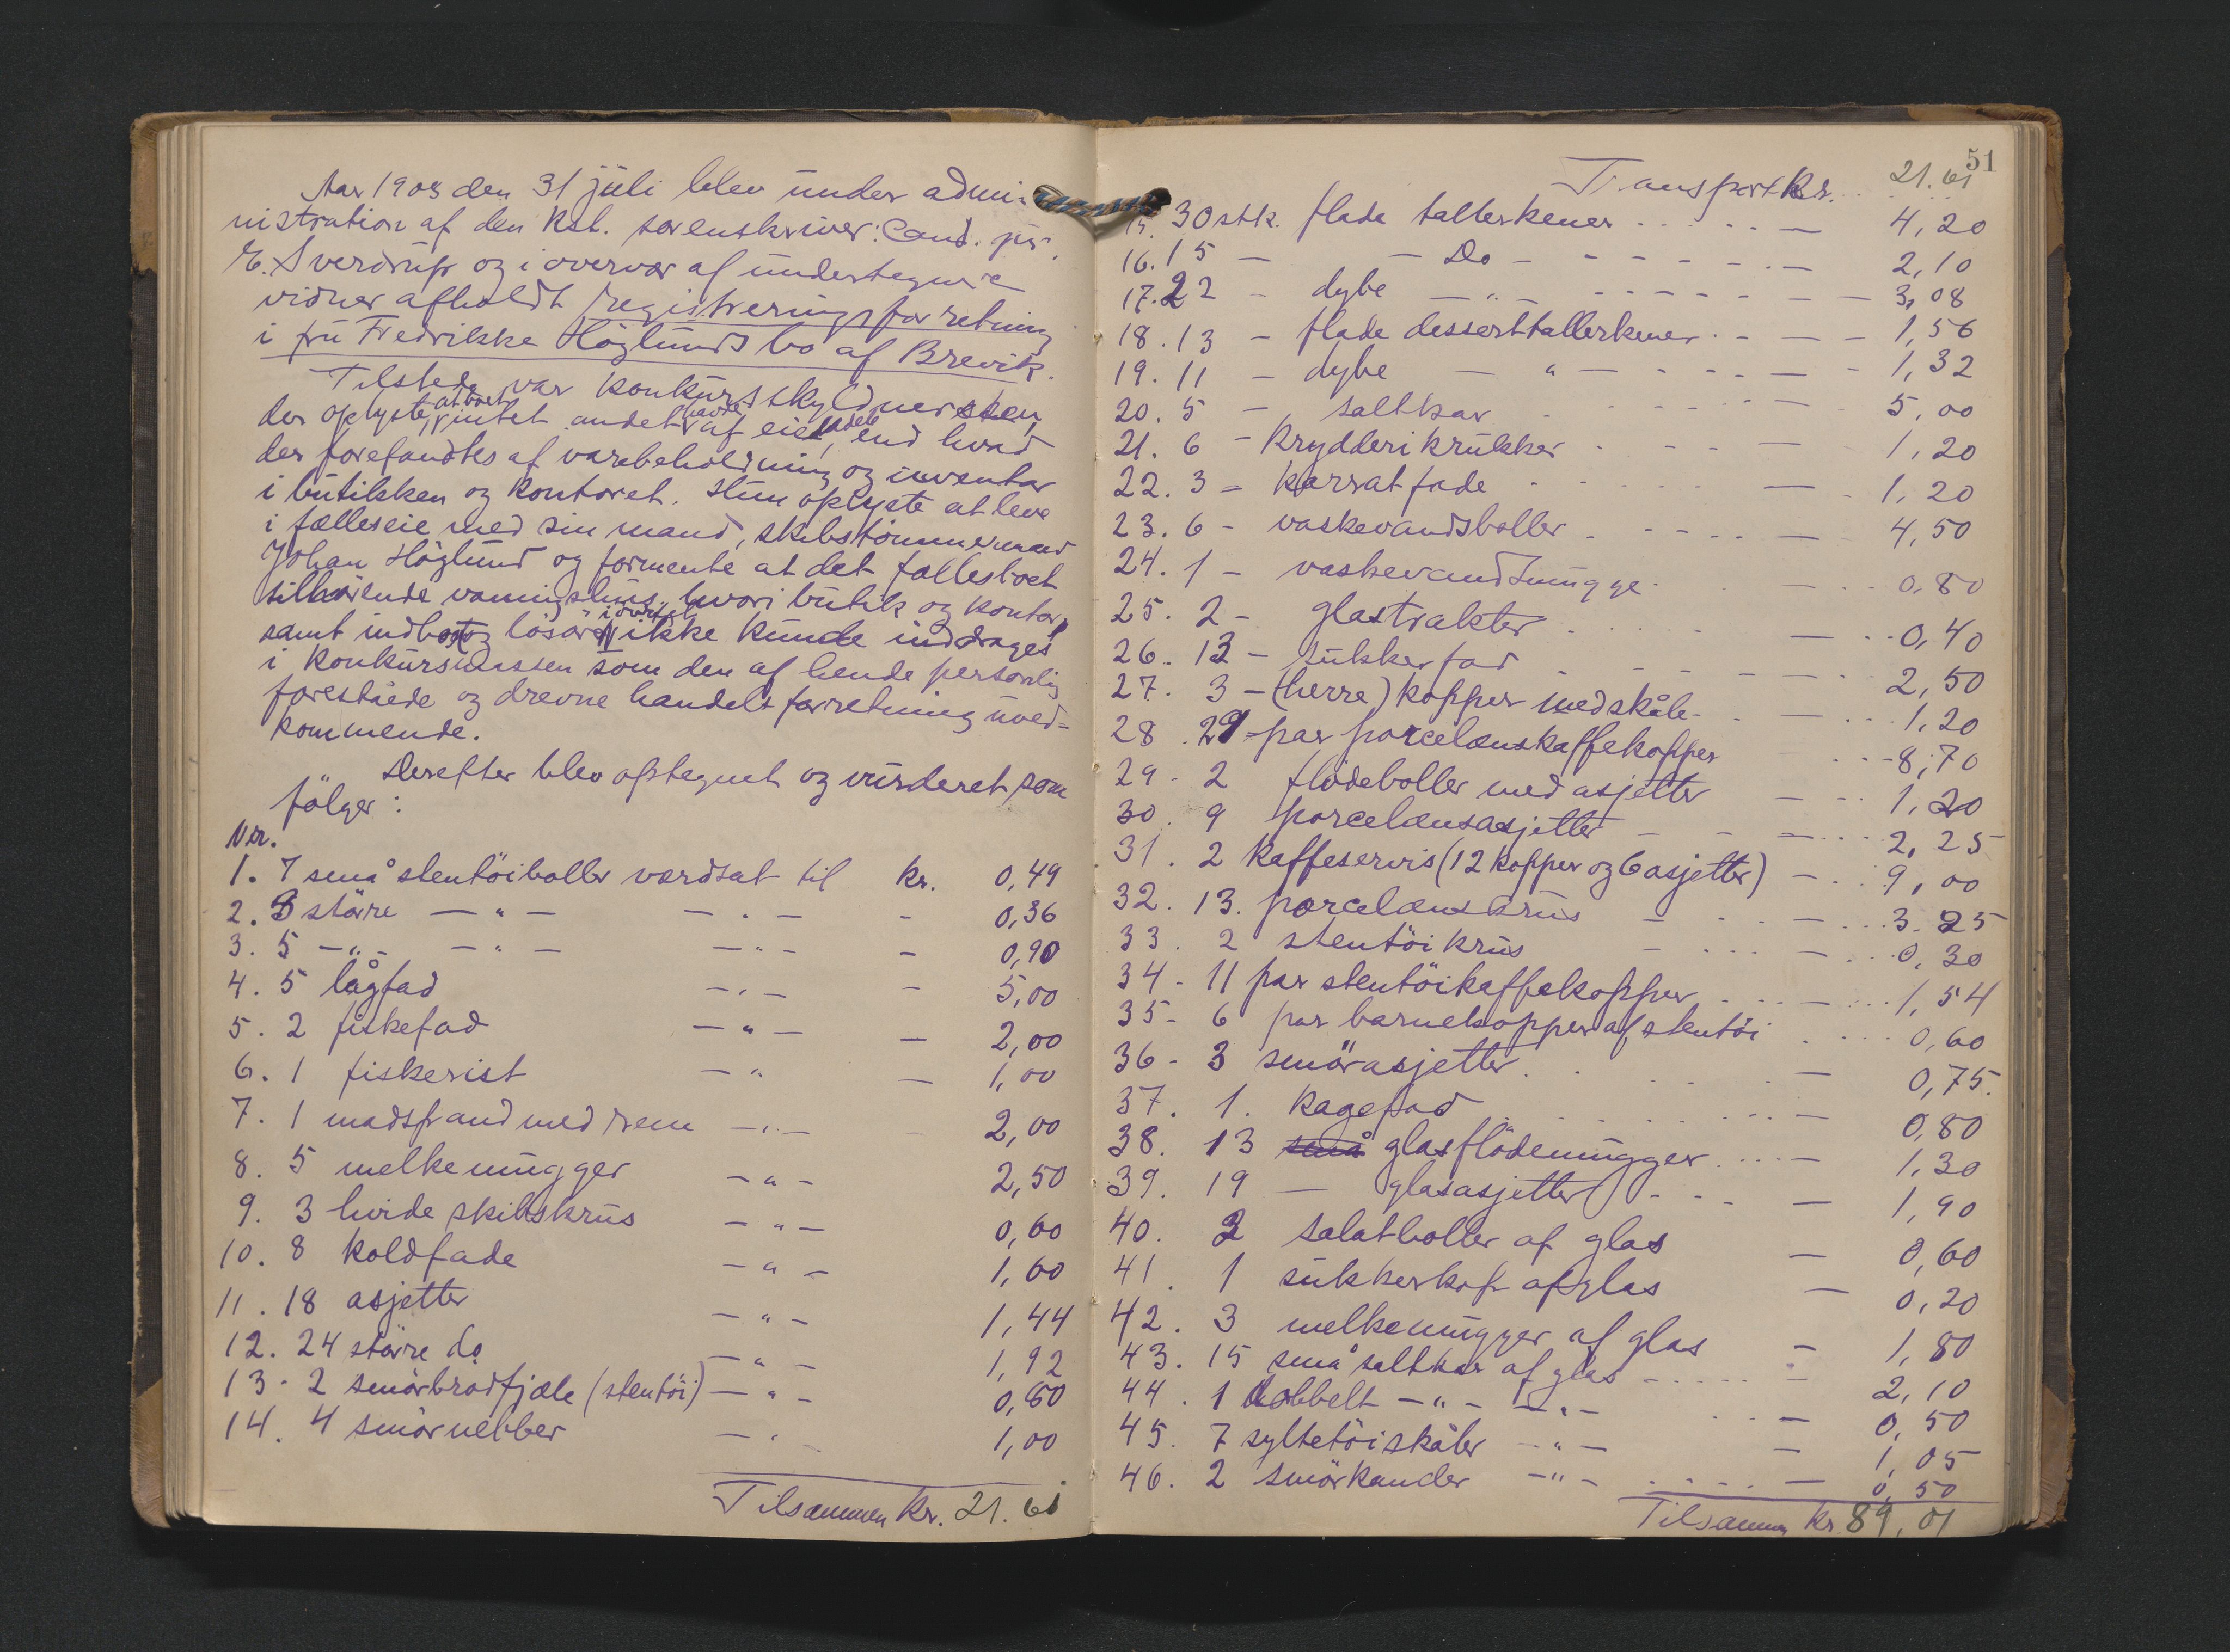 Aar 1903 den 31 juli blev under admi-
nistration af den kst. sorenskriver: Cand. jur.
E. Sverdrup og i overvær af undertegnede
vidner afholdt registreringsforretning
i fru Fredrikke Höglunds bo af Brevik.
Tilstede var konkursskyldnersken,
der oplyste, at boet intet andet havde af eiendele, end hvad
der forefandtes af varebeholdning og inventar
i butikken og kontoret. Hun oplyste at leve
i fælleseie med sin mand, skibstömmermand
Johan Höglund og formente at det fællesboet
tilhörende vaaningshus, hvori butik og kontor,
samt indbo og lösöre i övrigt ikke kunde inddrages
i konkursmassen som den af hende personlig
forestaaede og drevne handelsforretning uved-
kommende.
Derefter blev optegnet og vurderet som
fölger:
Nr.
1. 7 små stentöiboller værdsat til kr. 0,49
2. 3 större — " — — " — - 0,36
3. 5 — " — — " — — " — - 0,90
4. 5 lågfad — " — - 5,00
5. 2 fiskefad — " — — 2,00
6. 1 fiskerist — " — 1,00
7. 1 madspand med rem — " — 2,00
8. 5 melkemugger — " — 2,50
9. 3 hvide skibskrus — " — 0,60
10. 8 koldfade — " — 1,60
11. 18 asjetter — " — 1,44
12. 24 större do — " — 1,92
13. 2 smörbrödfjæle (stentöi) — " — 0,60
14. 4 smörnebber — " — 1,00
Tilsammen kr. 21.61
51
Transport kr. 21.61
15. 30 stk. flade tallerkener — 4,20
16. 15 — — Do — — 2,10
17. 22 — dybe — " — — 3,08
18. 13 — flade desserttallerkener — 1,56
19. 11 — dybe — " — — 1,32
20. 5 — saltkar — 5,00
21. 6 — krydderikrukker — 1,20
22. 3 — karsatfade — 1,20
23. 6 — vaskevandsboller — 4,50
24. 1 — vaskevandsmugge — 0,80
25. 2 — glastrakter — 0,40
26. 13 — sukkerfad — 2,50
27. 3 — (herre) kopper med skåle — 1,20
28. 29 par porcelænskaffekopper — 8,70
29. 2 flödeboller med asjetter — 1,20
30. 9 porcelænsasjetter — 2,25
31. 2 kaffeservis (12 kopper og 6 asjetter) — 9,00
32. 13. porcelænskrus — 3.25
33. 2 stentöikrus — 0,30
34. 11 par stentöikaffekopper — 1,54
35. 6 par barnekopper af stentöi 0,60
36. 3 smörasjetter — 0,75.
37. 1. kagefad — 0,80
38. 13 små glasflödemugger — 1,30
39. 19 — glasasjetter — 1,90
40. 3 salatboller af glas — 0,60
41. 1 sukkerkop af glas — 0,20
42. 3 melkemugger af glas — 1,80
43. 15 små saltkar af glas — 2,10
44. 1 dobbelt — " — — " — — 0,50
45. 7 syltetöiskåler — " — — 1,05
46. 2 smörkander — " — — 0,50
Tilsammen kr. 89,01